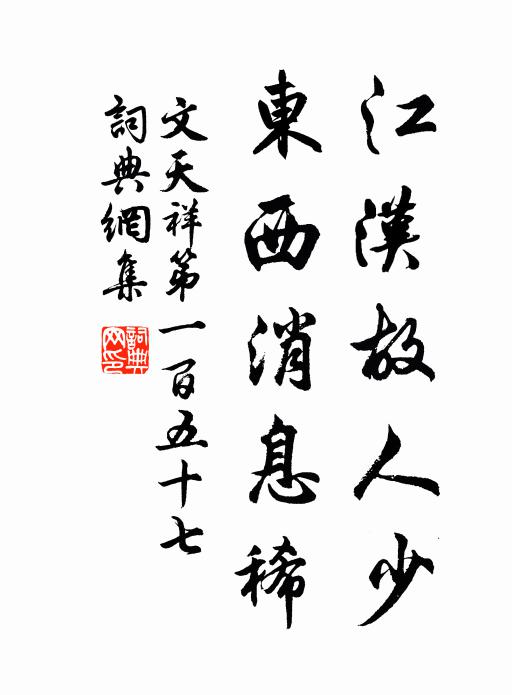 江漢故人少
東西消息稀
文天祥第一百五十七
詞典網集
詞典網印